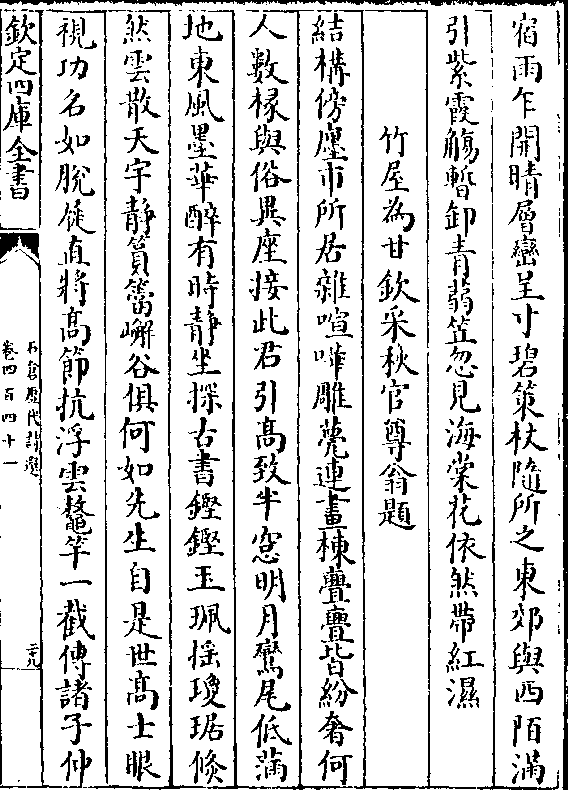 宿雨乍開晴層巒呈寸碧策杖隨所之東郊與西陌滿
引紫霞觴暫卸青蒻笠忽見海棠花依然帶紅濕
竹屋為甘欽采秋官尊翁題
結構傍廛市所居雜喧嘩雕甍連畫棟亹亹皆紛奢何
人數椽與俗異座接此君引高致半窓明月鸞尾低滿
地東風墨華醉有時靜坐探古書鏗鏗玉珮揺瓊琚倐
然雲散天宇靜篔簹嶰谷俱何如先生自是世髙士眼
視功名如脫屣直將髙節抗浮雲鼇竿一截傳諸子仲
欽定四庫全書
石倉歷代詩選
卷四百四十一
二十九